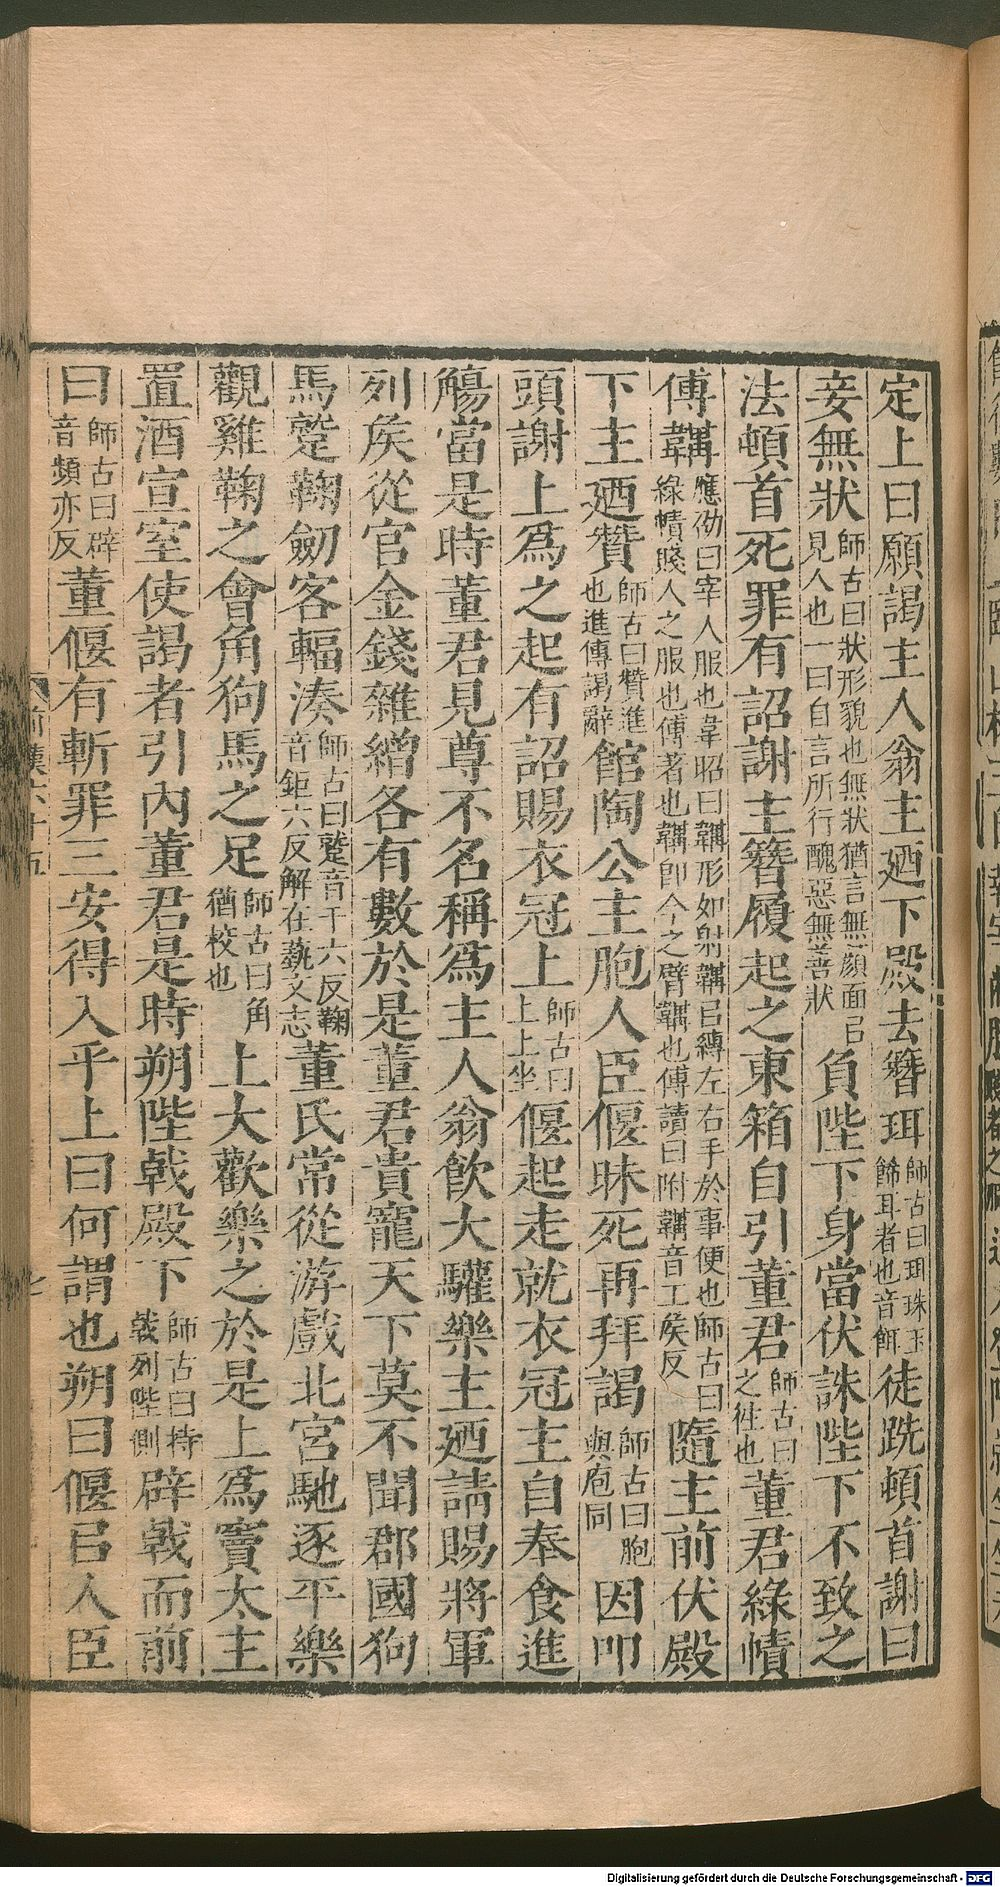 定上曰願謁主人翁主廼下殿去簪珥師古曰珥珠玉飾耳者也音餌徒跣頓首謝曰
妾無狀師古曰狀形貌也無狀猶言無顏面㠯見人也一曰自言所行醜惡無善狀負陛下身當伏誅陛下不致之
法頓首死罪有詔謝主簪履起之東箱自引董君師古曰之往也董君綠幘
傅韝應劭曰宰人服也韋昭曰韝形如射韝㠯縛左右手於事便也師古曰綠幘賤人之服也傅著也韝即今之臂韝也傅讀曰附韝音工矦反隨主前伏殿
下主廼贊師古曰贊進也進傳謁辭館陶公主胞人臣偃昧死再拜謁師古曰胞與庖同因叩
頭謝上爲之起有詔賜衣冠上師古曰上上坐偃起走就衣冠主自奉食進
觴當是時董君見尊不名稱爲主人翁飲大驩樂主廼請賜將軍
列矦從官金錢雜繒各有數於是董君貴寵天下莫不聞郡國狗
馬蹵鞠劒客輻湊師古曰蹵音千六反鞠音鉅六反解在蓺文志董氏常從游戲北宮馳逐平樂
觀雞鞠之會角狗馬之足師古曰角猶校也上大歡樂之於是上爲竇太主
置酒宣室使謁者引內董君是時朔陛戟殿下師古曰持戟列陛側辟戟而前
曰師古曰辟音頻亦反董偃有斬罪三安得入乎上曰何謂也朔曰偃㠯人臣
前漢六十五
七
Digitalisierung gefördert durch die Deutsche Forschungsgemeinschaft - DFG